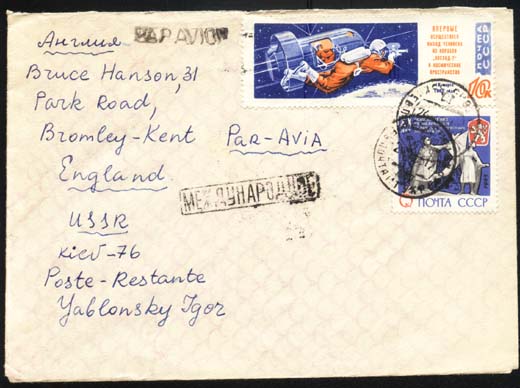 Англия
PAR AVION
Bruce Hanson, 31
Park Road,
Bromley-Kent
England
Par-Avia
МЕЖДУНАРОДНОЕ
USSR
Kiev-76
Poste-Restante
Yablonsky Igor
ВПЕРВЫЕ
ОСУЩЕСТВЛЕН
ВЫХОД ЧЕЛОВЕКА
ИЗ КОРАБЛЯ
В КОСМИЧЕСКОЕ
ПРОСТРАНСТВО
ПОЧТА
СССР
10К
6
ПОЧТА СССР